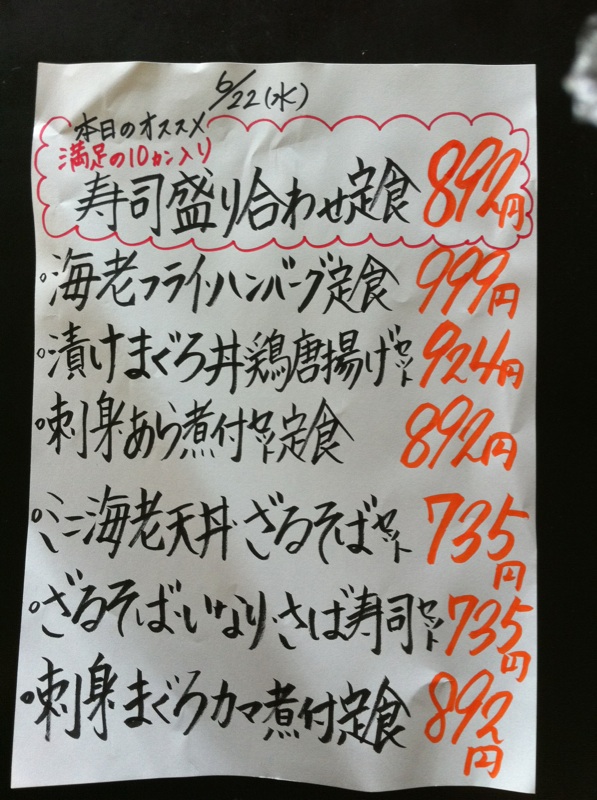 6/22(水)
本日のオススメ
満足の10カン入り
寿司盛り合わせ定食 892円
海老フライ・ハンバーグ定食 999円
漬けまぐろ丼・鶏唐揚げセット 924円
刺身あら煮付セット定食 892円
ミニ海老天丼・ざるそばセット 735円
ざるそば・いなり・さば寿司セット 735円
刺身まぐろカマ煮付定食 892円